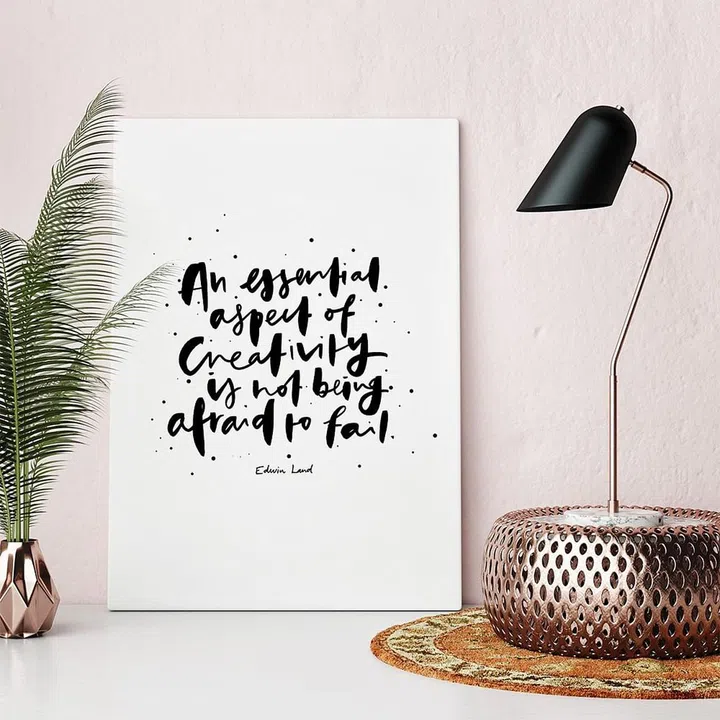 An essential
aspect of
Creativity
is not being
afraid to fail.
Edwin Land